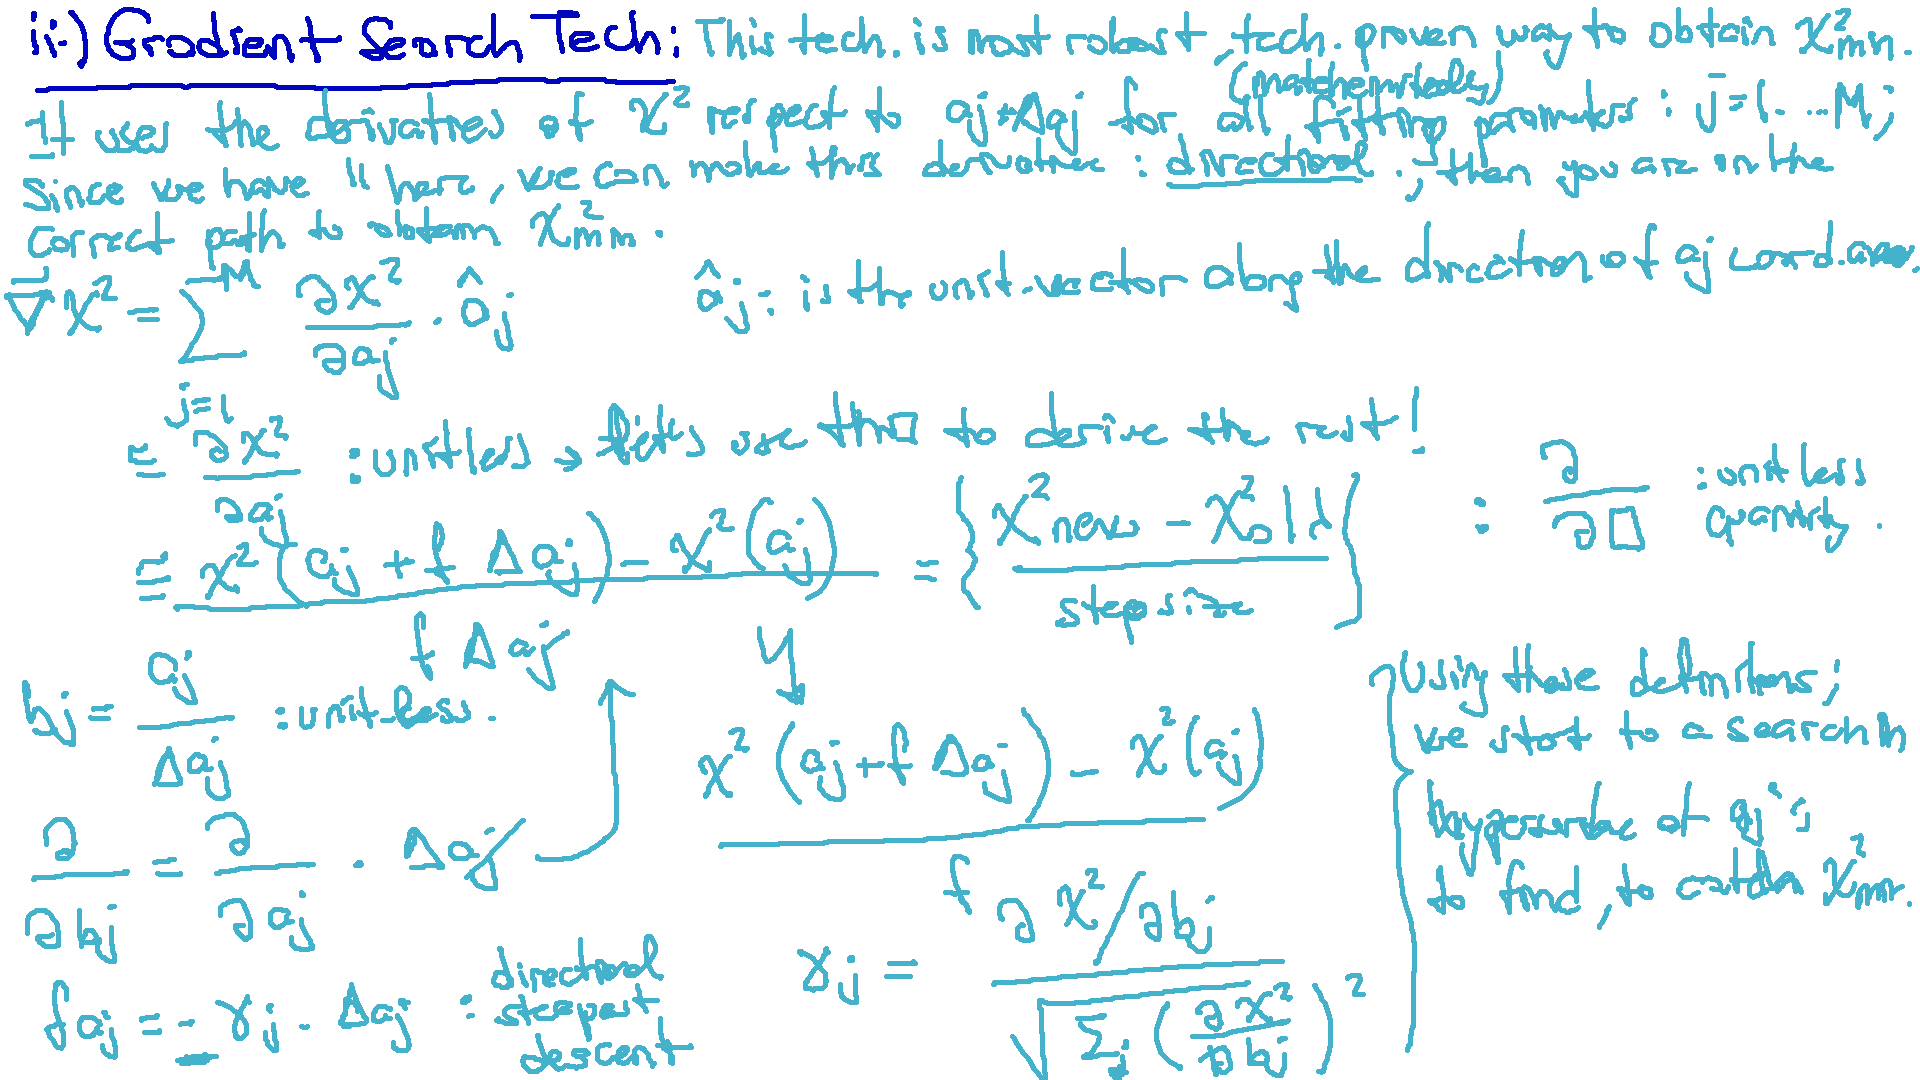 ii-) Gradient Search Tech: This tech. is most robust, tech. proven way to obtain χ²min.
(mathematically)
It uses the derivatives of χ² respect to aj+Δaj for all fitting parameters : j=1....M;
Since we have " here, we can make this derivative : directional., then you are in the
correct path to obtain χ²min.
∇χ² = Σ_{j=1}^{M} ∂χ²/∂aj . âj     âj : is the unit-vector along the direction of aj coord.
≡ ∂χ²/∂aj : unitless → let's use this □ to derive the rest!
≅ (χ²(aj + f Δaj) - χ²(aj)) / (f Δaj) = { (χ²new - χ²old) / step size } : ∂/∂□ : unitless quantity.
bj = aj/Δaj : unit-less.
(χ²(aj+f Δaj) - χ²(aj)) / f
∂/∂bj = ∂/∂aj . Δaj
γj = (∂χ²/∂bj) / √(Σj (∂χ²/∂bj)²)
δaj = - γj . Δaj : directional steepest descent
Using these definitions;
we start to a search in
hypersurface of aj's
to find, to catch χ²min.